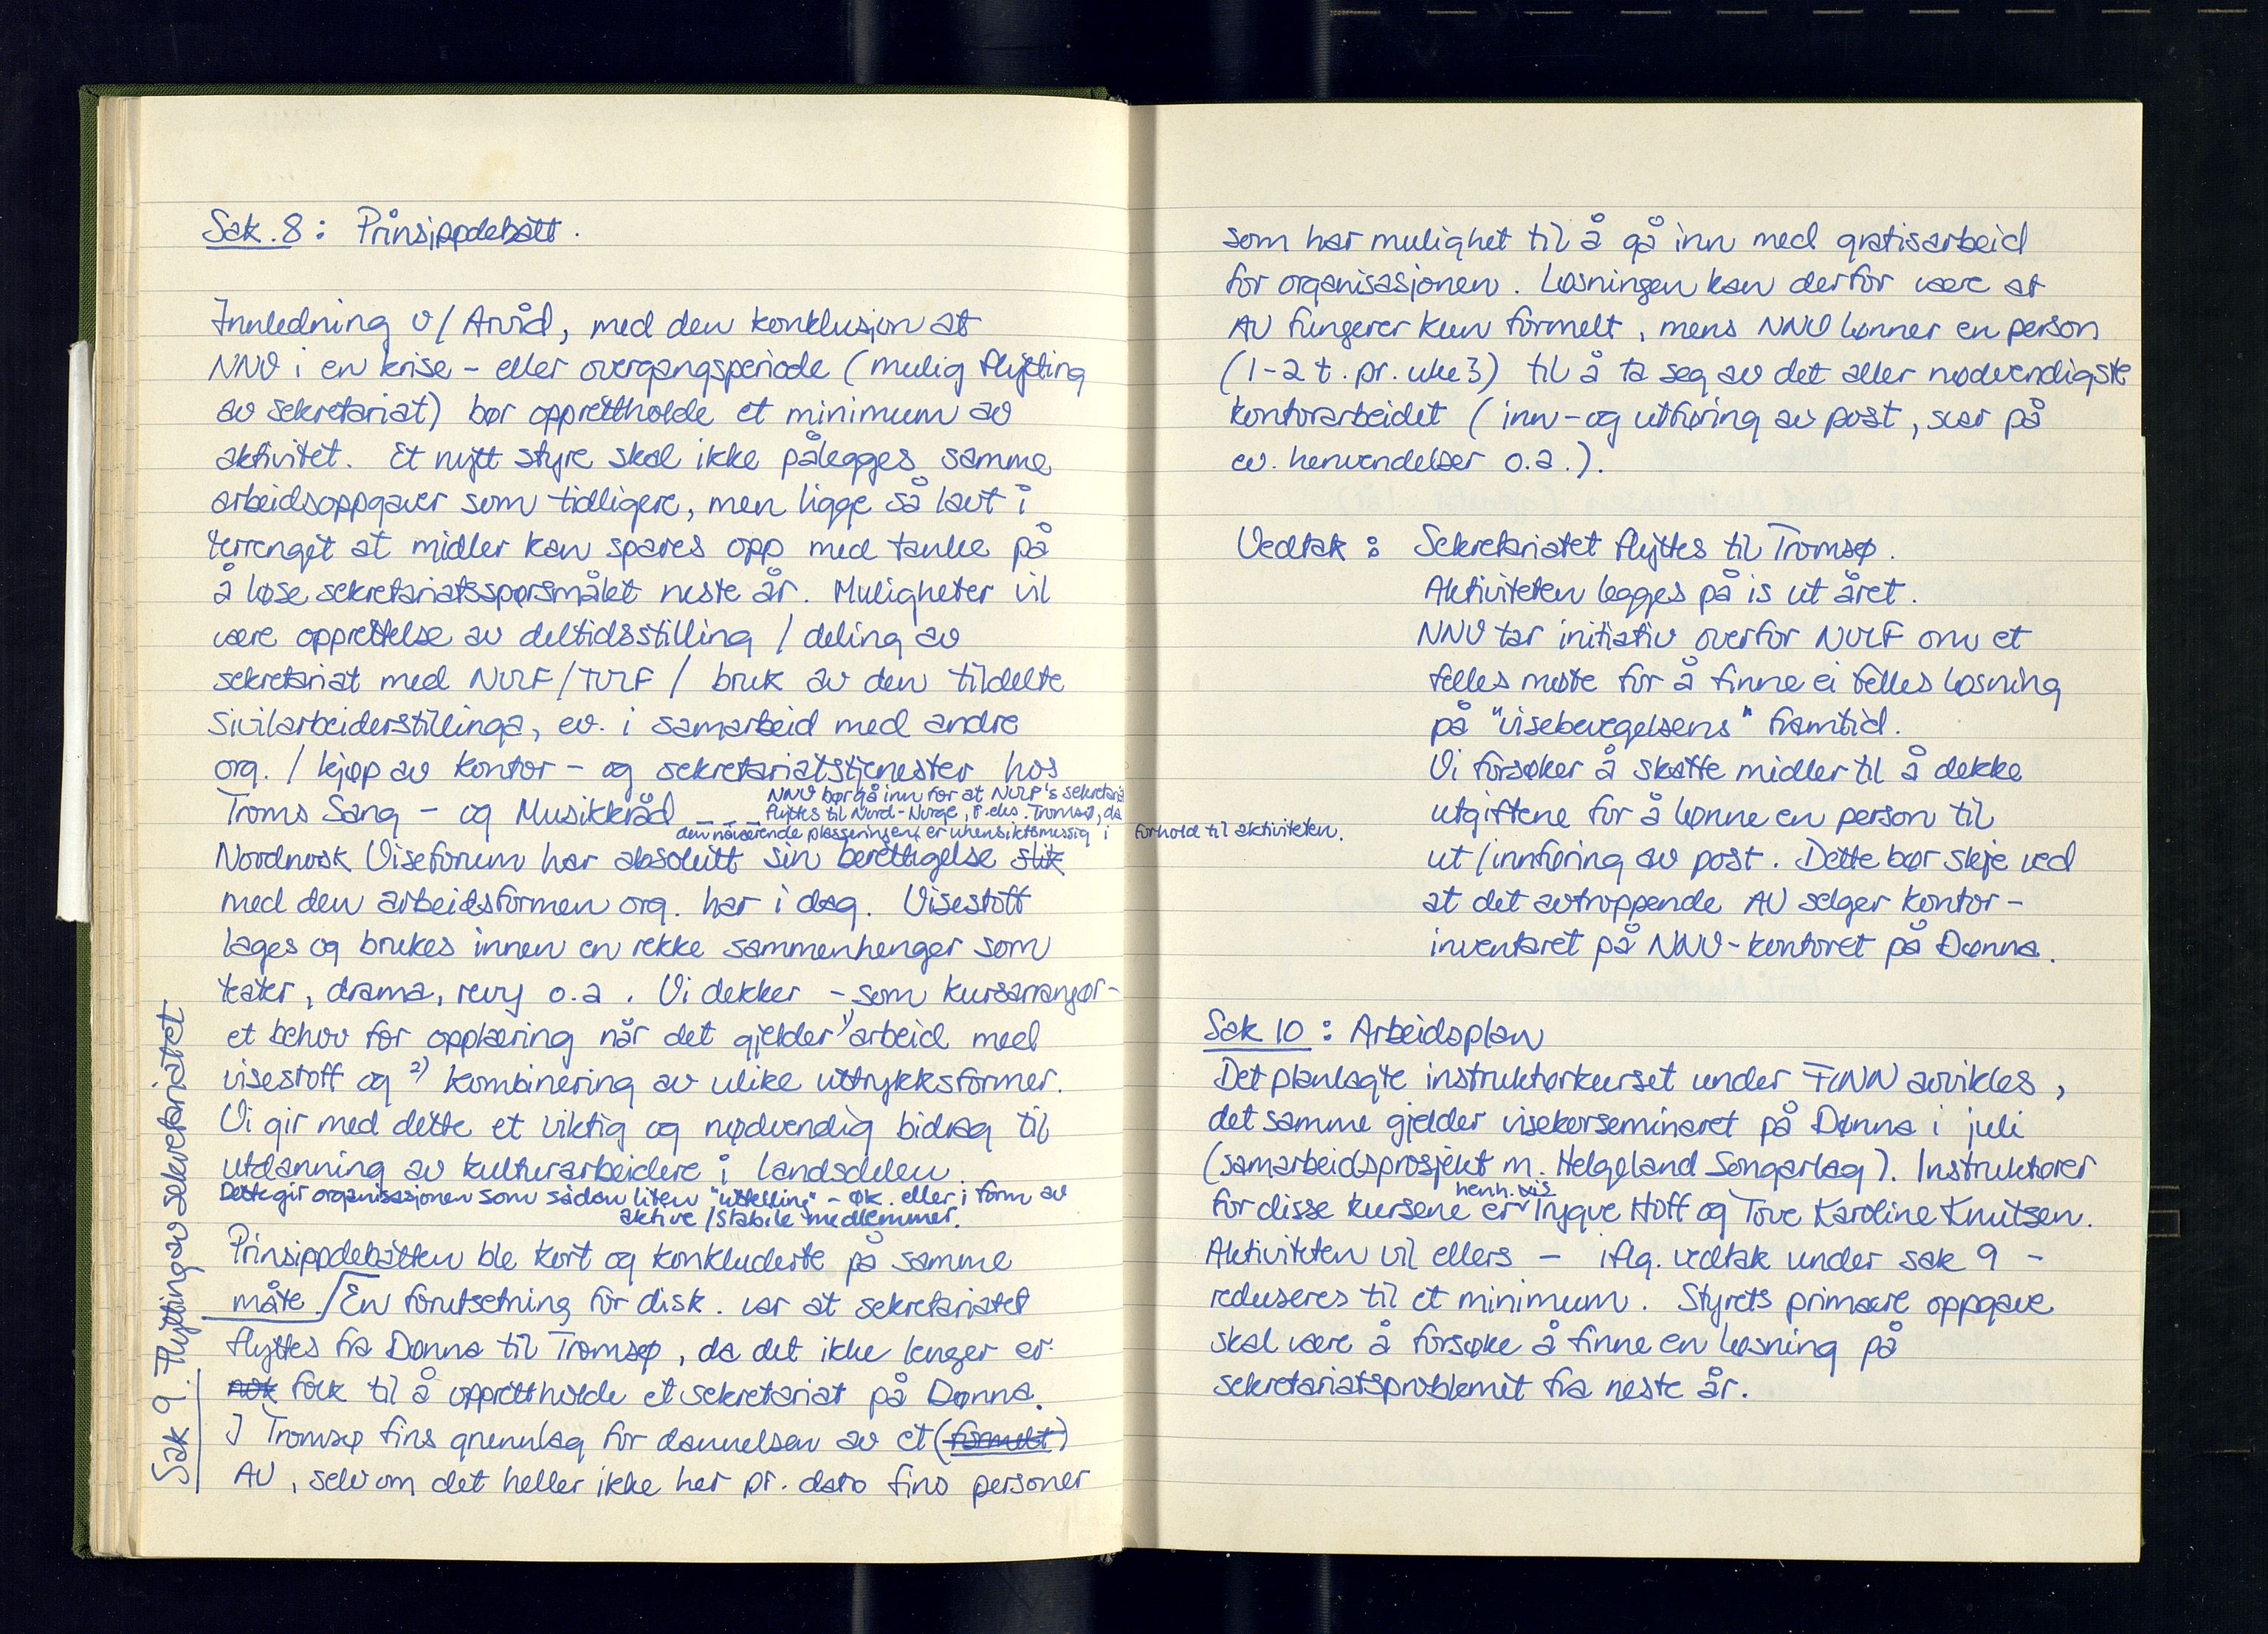 Sak. 8: Prinsippdebatt.
Innledning v/ Arvid, med den konklusjon at
NNV i en krise- eller overgangsperiode (mulig flytting
av sekretariat) bør opprettholde et minimum av
aktivitet. Et nytt styre skal ikke pålegges samme
arbeidsoppgaver som tidligere, men ligge så lavt i
terrenget at midler kan spares opp med tanke på
å løse sekretariatsspørsmålet neste år. Muligheter vil
være opprettelse av deltidsstilling / deling av
sekretariat med NVLF/TVLF / bruk av den tildelte
Sivilarbeiderstillinga, ev. i samarbeid med andre
org. / kjøp av kontor- og sekretariatstjenester hos
Troms Sang- og Musikkråd _ _ _
NNV bør gå inn for at NVLF's sekretariat
flyttes til Nord-Norge, f.eks. Tromsø, da
den nåværende plasseringen er uhensiktsmessig i forhold til aktiviteten.
Nordnorsk Viseforum har absolutt sin berettigelse slik
med den arbeidsformen org. har i dag. Visestoff
lages og brukes innen en rekke sammenhenger som
teater, drama, revy o.a. Vi dekker - som kursarrangør -
et behov for opplæring når det gjelder 1) arbeid med
visestoff og 2) kombinering av ulike uttrykksformer.
Vi gir med dette et viktig og nødvendig bidrag til
utdanning av kulturarbeidere i landsdelen.
Dette gir organisasjonen som sådan liten "uttelling" - øk. eller i form av
aktive / stabile medlemmer.
Prinsippdebatten ble kort og konkluderte på samme
måte. / En forutsetning for disk. var at sekretariatet
flyttes fra Dønna til Tromsø, da det ikke lenger er
nok folk til å opprettholde et sekretariat på Dønna.
I Tromsø fins grunnlag for dannelsen av et (formelt)
AU, selv om det heller ikke her pr. dato fins personer
Sak 9. Flytting av sekretariatet
som har mulighet til å gå inn med gratisarbeid
for organisasjonen. Løsningen kan derfor være at
AU fungerer kun formelt, mens NNV lønner en person
(1-2 t. pr. uke?) til å ta seg av det aller nødvendigste
kontorarbeidet (inn- og utføring av post, svar på
ev. henvendelser o.a.).
Vedtak: Sekretariatet flyttes til Tromsø.
Aktiviteten legges på is ut året.
NNV tar initiativ overfor NVLF om et
felles møte for å finne ei felles løsning
på "visebevegelsens" framtid.
Vi forsøker å skaffe midler til å dekke
utgiftene for å lønne en person til
ut/innføring av post. Dette bør skje ved
at det avtroppende AU selger kontor-
inventaret på NNV-kontoret på Dønna.
Sak 10: Arbeidsplan
Det planlagte instruktørkurset under FUNN avvikles,
det samme gjelder visekorseminaret på Dønna i juli
(samarbeidsprosjekt m. Helgeland Songarlag). Instruktører
for disse kursene er henh. vis Trygve Hoff og Tove Karoline Knutsen.
Aktiviteten vil ellers - iflg. vedtak under sak 9 -
reduseres til et minimum. Styrets primære oppgave
skal være å forsøke å finne en løsning på
sekretariatsproblemet fra neste år.